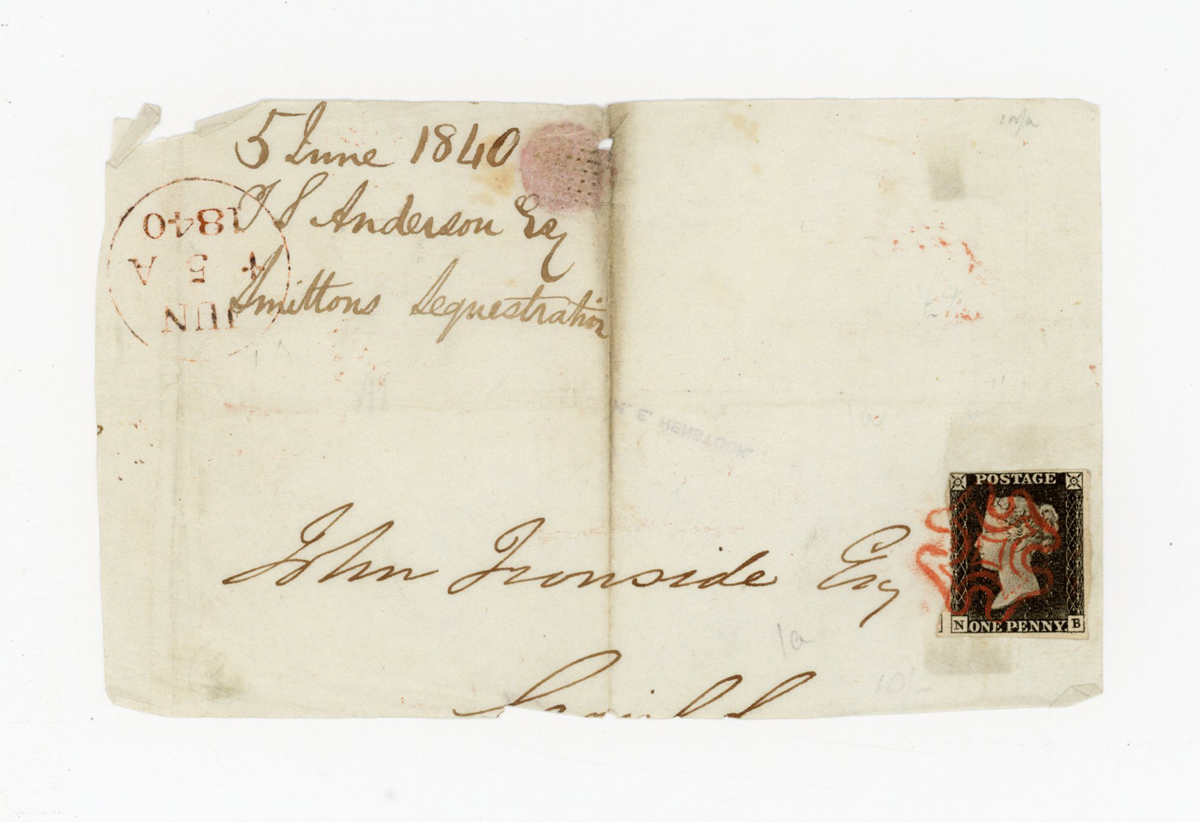 5 June 1840
J S Anderson Esq
Smittons Sequestration
JUN
5 A
1840
H. E. HENSTOCK.
John Ironside Esq
POSTAGE
N ONE PENNY B
1a
10/-